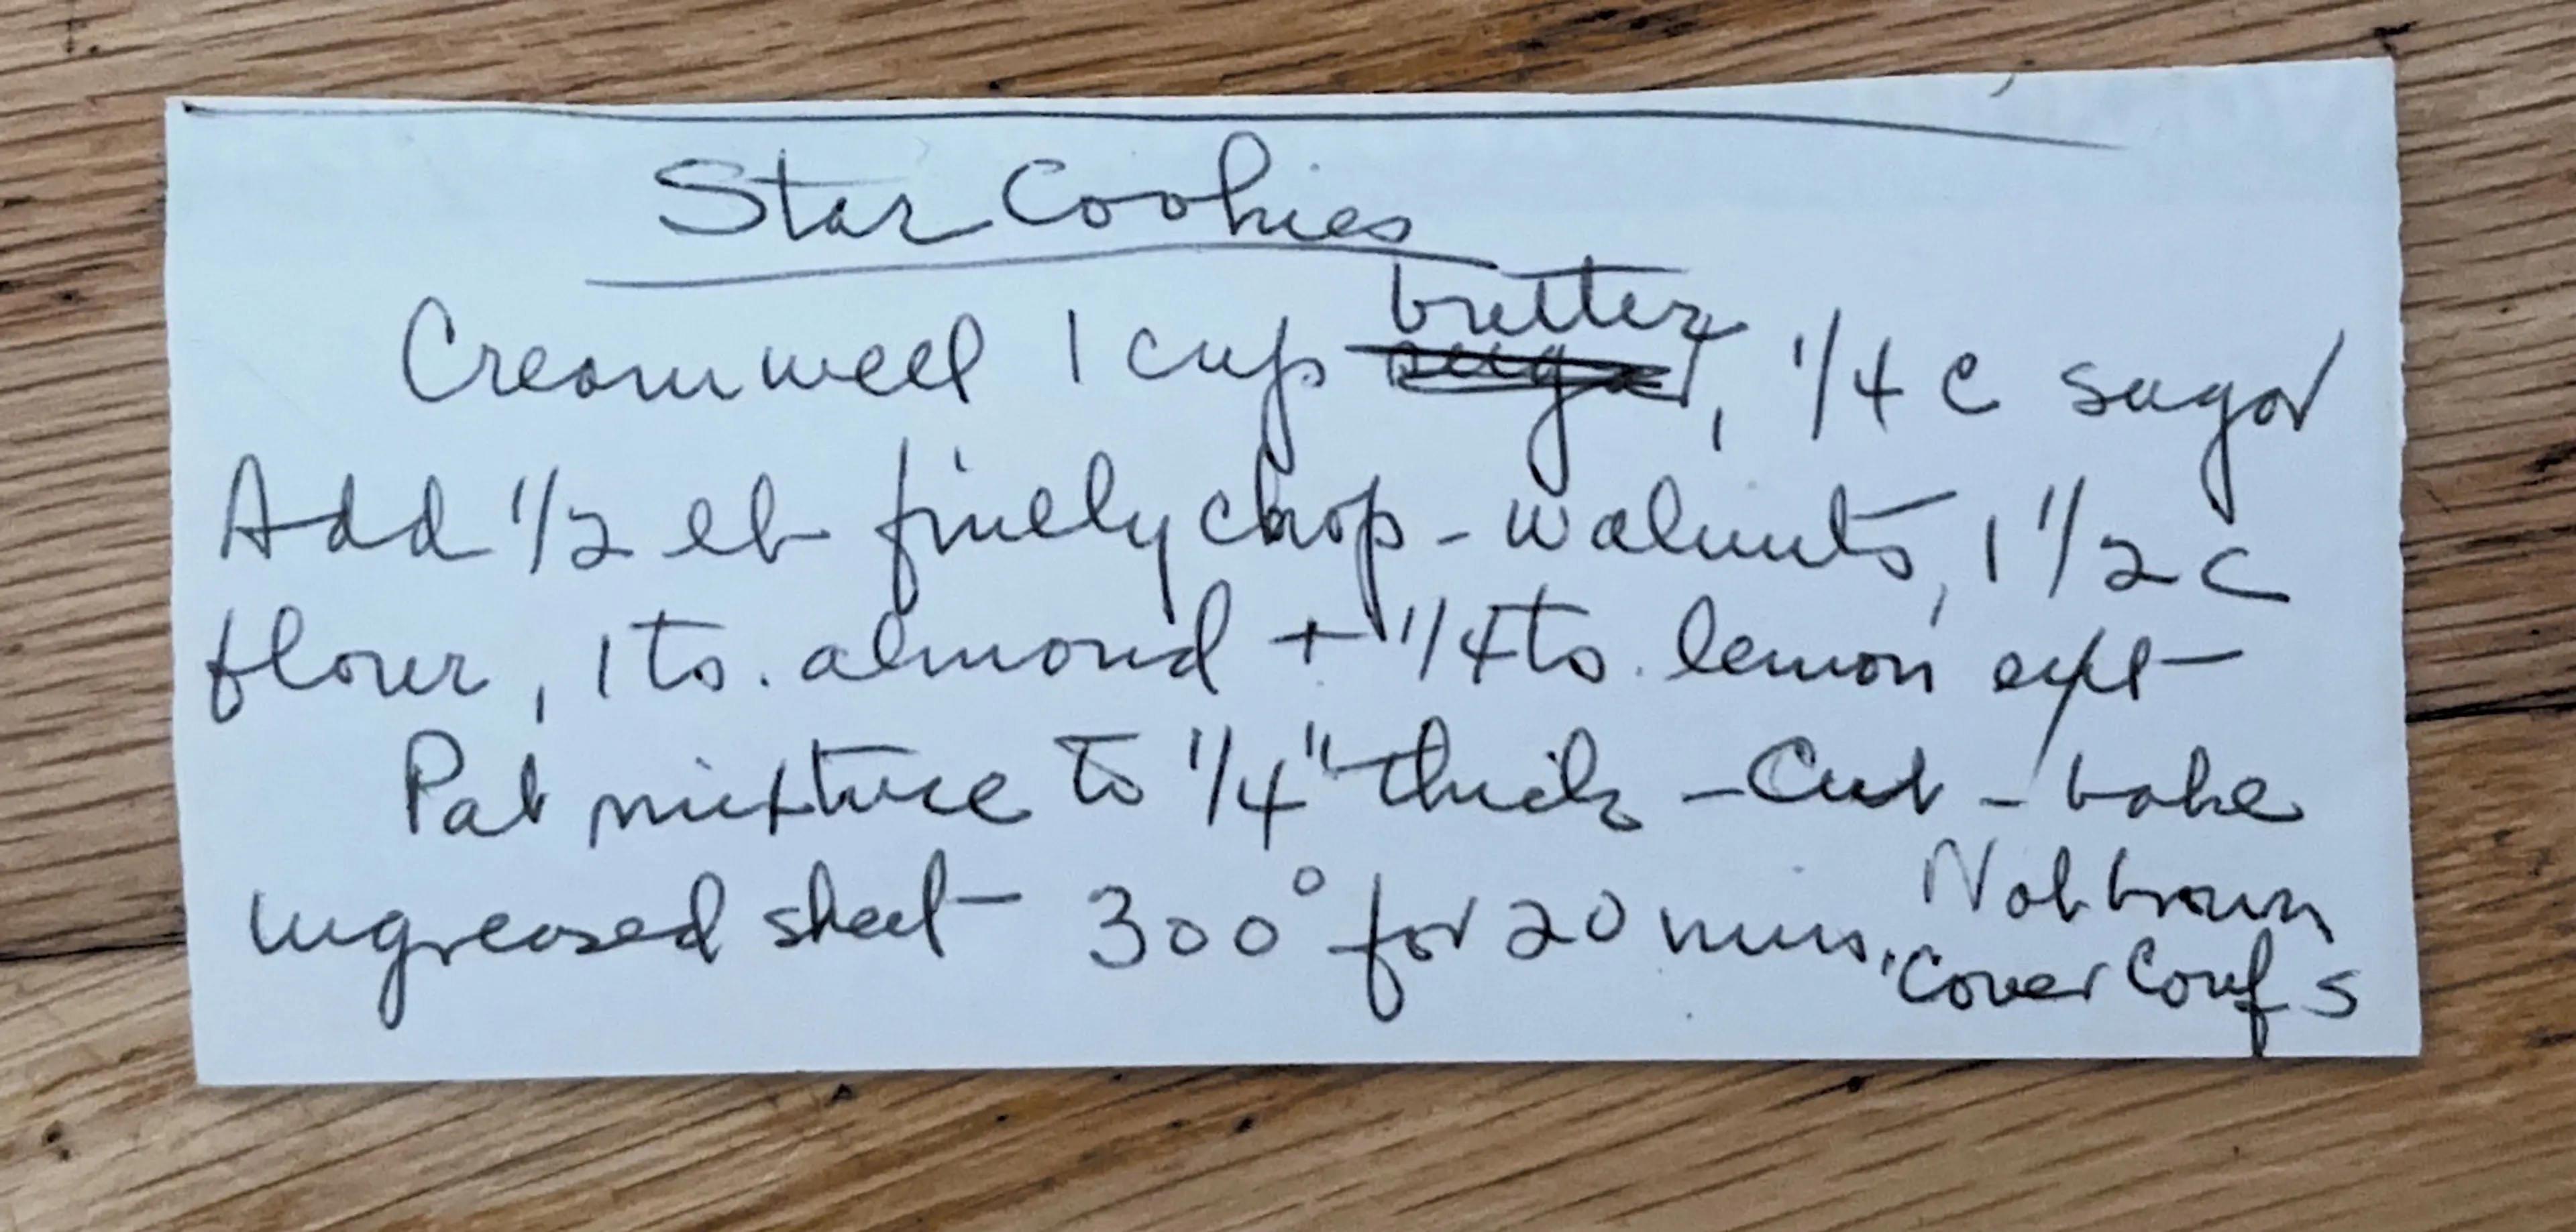 Star Cookies
Cream well 1 cup butter, 1/4 c sugar
Add 1/2 lb finely chop - walnuts, 1 1/2 c
flour, 1 ts. almond + 1/4 ts. lemon ext
Pat mixture to 1/4" thick - Cut - bake
ungreased sheet - 300° for 20 mins. Not brown
Cover Conf s